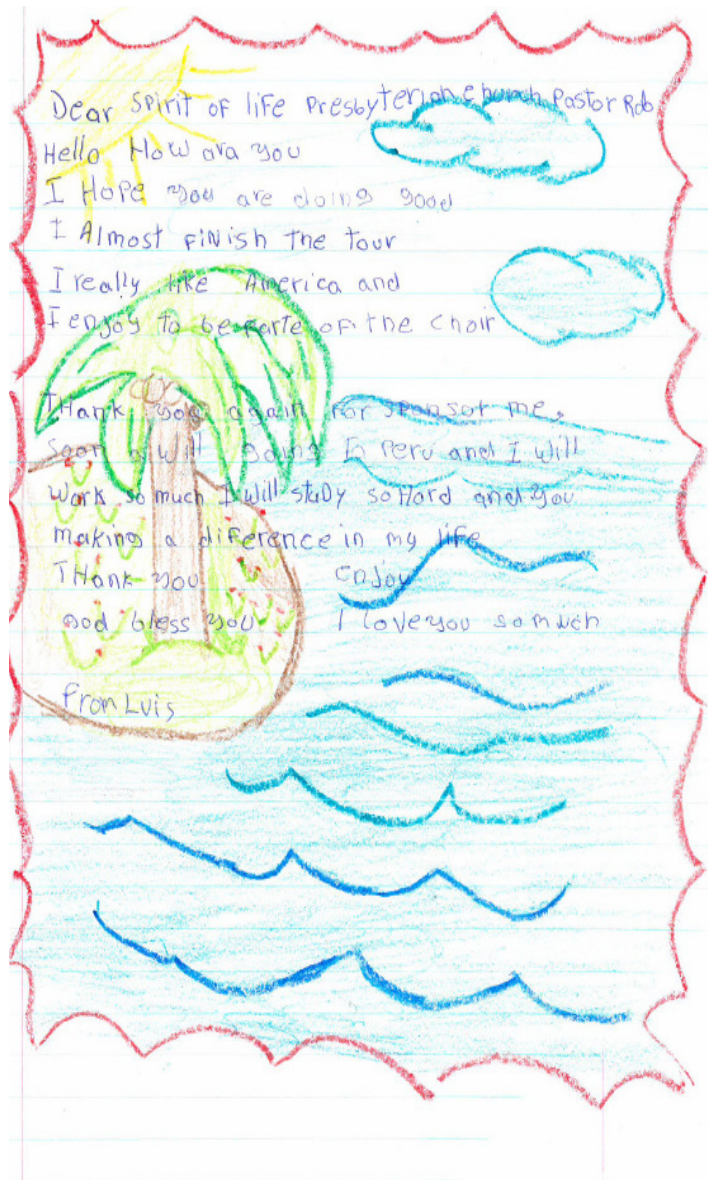 Dear Spirit of life Presbyterian church Pastor Rob
Hello How ara you
I Hope you are doing good
I Almost finish the tour
I really like America and
I enjoy to be parte of the choir
THank you again for sponsor me,
Soon I will going to Peru and I will
work so much I will study so Hard and you
making a diference in my life
THank you enjoy
God bless you I love you so much
from Luis